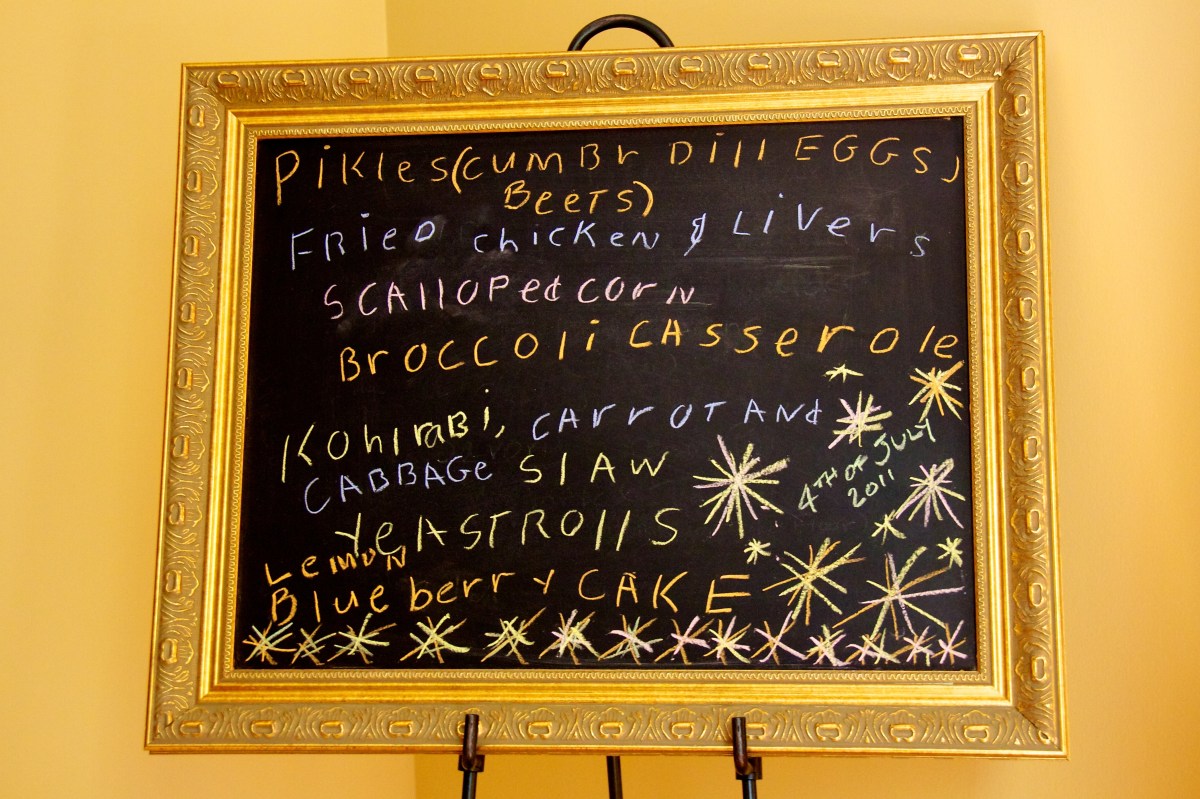 Pikles (CUMBr Dill EGGS,
Beets)
FRieD chicken & Livers
SCAllOPed COrN
BrOCCOli CASserole
KohlraBi, CArrOT ANd
CABBAGe SlAW
YeAST ROllS
Lemon
Blueberry CAKE
4TH OF JULY
2011